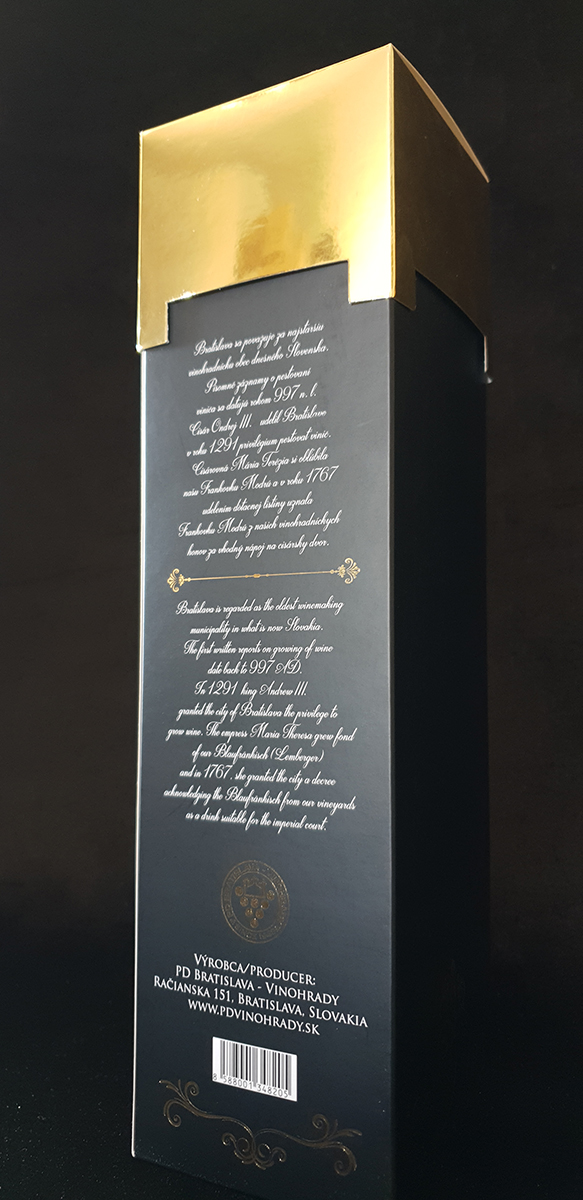 Bratislava sa považuje za najstaršiu
vinohradnícku obec dnešného Slovenska.
Písomné záznamy o pestovaní
viniča sa datujú rokom 997 n. l.
Cisár Ondrej III. udelil Bratislave
v roku 1291 privilégium pestovať vinič.
Cisárovná Mária Terézia si obľúbila
našu Frankovku Modrú a v roku 1767
udelením dotačnej listiny uznala
Frankovku Modrú z našich vinohradníckych
honov za vhodný nápoj na cisársky dvor.
Bratislava is regarded as the oldest winemaking
municipality in what is now Slovakia.
The first written reports on growing of wine
date back to 997 AD.
In 1291 king Andrew III.
granted the city of Bratislava the privilege to
grow wine. The empress Maria Theresa grew fond
of our Blaufränkisch (Lemberger)
and in 1767, she granted the city a decree
acknowledging the Blaufränkisch from our vineyards
as a drink suitable for the imperial court.
VÝROBCA/PRODUCER:
PD BRATISLAVA - VINOHRADY
RAČIANSKA 151, BRATISLAVA, SLOVAKIA
WWW.PDVINOHRADY.SK
8 588001 348205